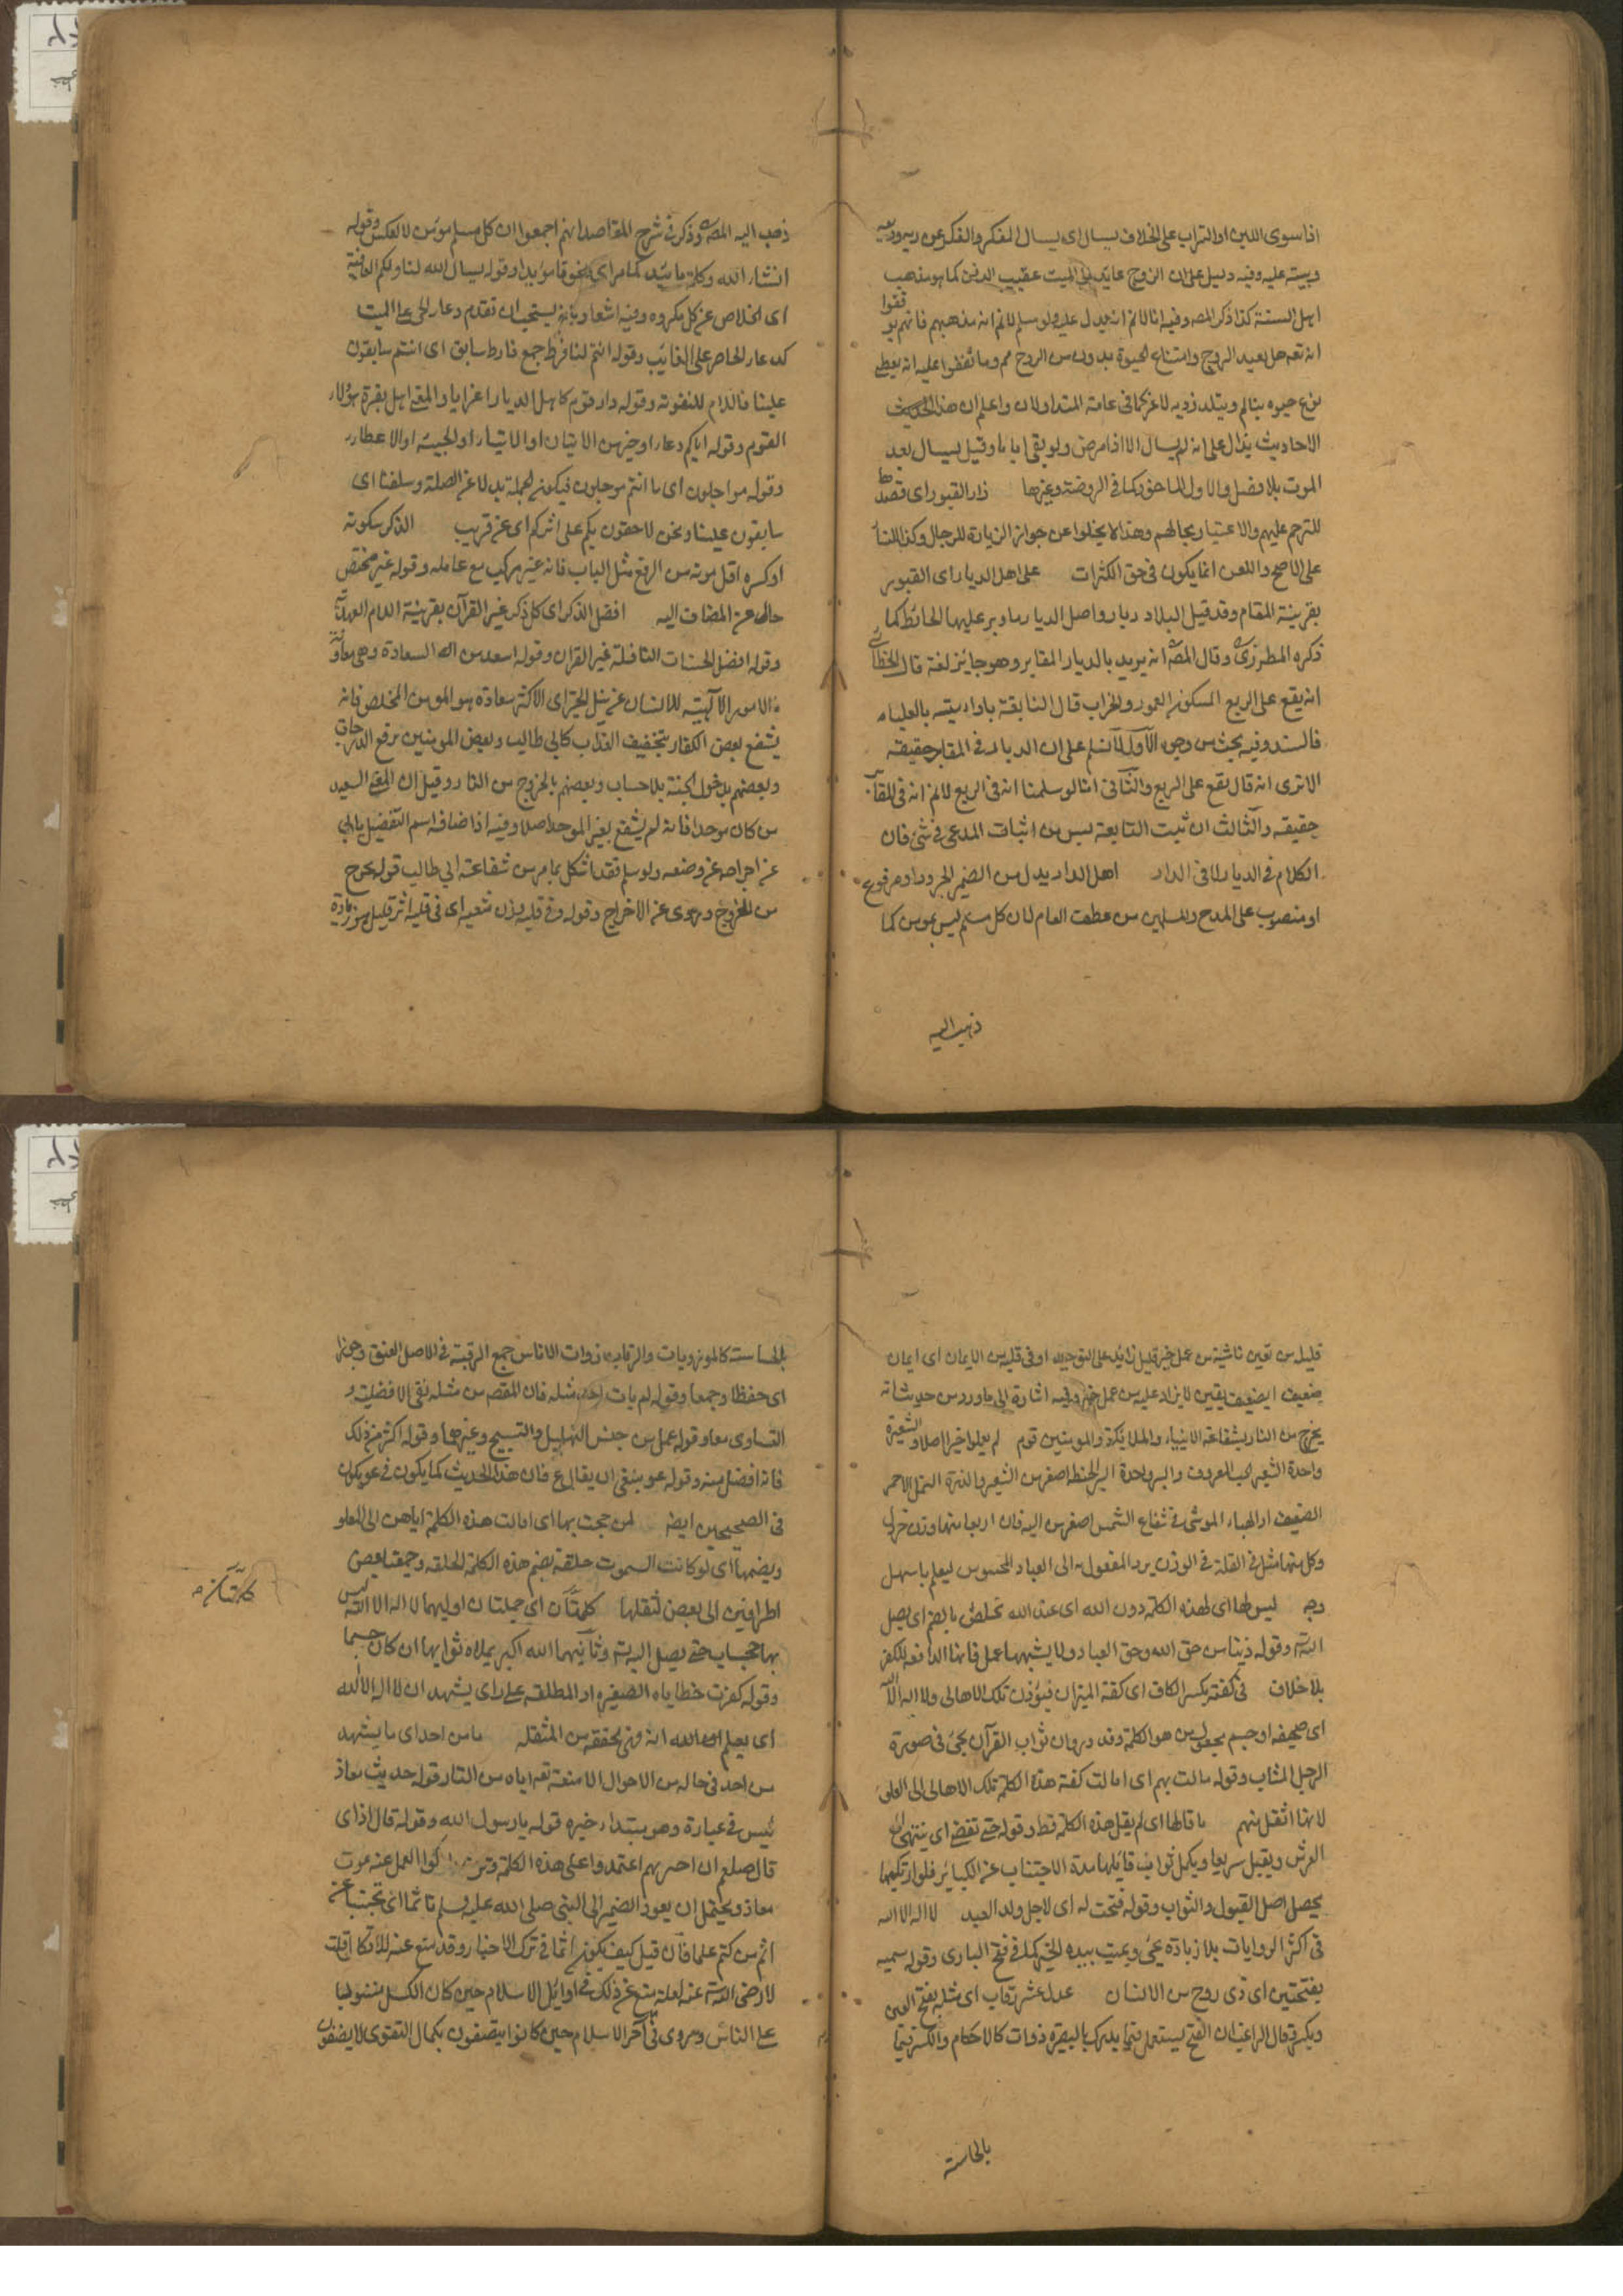 اذا سوى اللبن او التراب على الخلاف يسال اى يسال المنكر والنكير عن ربه ودينه
ونبيه عليه وفيه دليل على ان الروح عايد الى الميت عقيب الدفن كما هو مذهب
اهل السنة كذا ذكر المصـ وفيه انا لا نم انه يدل عليه ولو سلم لا نم انه مذهبهم فانهم توقفوا
انه تعـ هل يعيد الروح وامتناع الحيوة بدون الروح مم وما تفقوا عليه انه يعطى
نوع حيوه يتالم ويتلذذ به لا غير كما فى عامة المتداولات واعلم ان هذا الحديث
الاحاديث يدل على انه لم يسال الا اذا مرض ولو بقى اياما وقيل يسال بعد
الموت بلا فصل والاول الماحق كما فى الروضة وغيرها زار القبور اى قصدها
للترحم عليهم والاعتبار بحالهم وهذا لا يخلوا عن جواز الزيارة للرجال وكذا للنساء
على الاصح واللعن انما يكون فى حق المكثرات على اهل الديار اى القبور
بقرينة المقام وقد قيل البلاد ديار واصل الديار ما دير عليها الحائط كما
ذكره المطرزى وقال المصـ انه يريد بالديار المقابر وهو جائز لغة قال الخطابى
انه يقع على الربع المسكون المعمور والخراب قال النابغة يا دار مية بالعلياء
فالسند وفيه بحث من وجوه الاول لا نسلم على ان الديار فى المقابر حقيقة
الا ترى انه قال يقع على الربع والثانى انا لو سلمنا انه فى الربع لا نم انه فى المقابر
حقيقة والثالث ان ثبت التابعة ليس من اثبات المدعى فى شئ فان
الكلام فى الديار لا فى الدار اهل الدار بدل من الضمير المجرور او مرفوع
او منصوب على المدح والمسلمين من عطف العام لان كل مسلم ليس بمومن كما
ذهب اليه
ذهب اليه المصـ وذكر فى شرح المقاصد انهم اجمعوا ان كل مسلم مومن لا لعكس وقوله
انشاء الله وكلمة ما يتد كما مر اى لحوقا مؤيدا وقوله يسال الله لنا ولكم العافية
اى الخلاص عن كل مكروه وفيه اشعار بانه يستحب ان تقدم دعاء الحى على الميت
كدعاء الحاضر على الغايب وقوله انتم لنا فرط جمع فارط سابق اى انتم سابقون
علينا فاللام للتقوية وقوله دار قوم كاهل الديار اعرابا والمعنى اهل مقبرة هؤلاء
القوم وقوله اياكم دعاء او خبر من الاتيان او الايتاء او المجيئة او الاعطاء
وقوله مواجلون اى ما انتم موجلون فيكون الجملة بدلا عن الصلة وسلفنا اى
سابقون علينا ونحن لاحقون بكم على اثركم اى عن قريب الذكر سكوته
او كسره اقل مونة من الرفع مثل الباب فانه غير مركب مع عامله وقوله غير مختص
حال عن المضاف اليه افضل الذكر اى كل ذكر غير القرآن بقرينة اللام العهدية
وقوله افضل الحسنات النافلة غير القران وقوله اسعد من السعادة وهى معاونة
الامور الالهية للانسان على نيل الخير اى الاكثر سعادة هو المومن المخلص فانه
يشفع بعض الكفار بتخفيف العذاب كابى طالب وبعض المومنين برفع الدرجات
وبعضهم بدخول الجنة بلا حساب وبعضهم بالخروج من النار وقيل ان المعنى السعيد
من كان موحدا فانه لم يشفع بغير الموحد اصلا وفيه اذا ضافه اسم التفضيل يابى
عن اجراجه عن وضعه ولو سلم فقد اشكل بما مر من شفاعته ابى طالب قوله يخرج
من الخروج ومروى عن الاخراج وقوله وفى قلبه وزن شعيره اى فى قلبه اثر قليل من زيادة
قليله من يقين ناشية من عمل خير قليل زائد على التوحيد او فى قلبه من الايمان اى ايمان
ضعيف اى ضعيف يقين لا يزاد عليه من عمل خير وفيه اشارة الى ما ورد من حديث انه
يخرج من النار بشفاعة الانبياء والملائكة والمومنين قوم لم يعملوا خيرا اصلا والشعيرة
واحدة الشعير الحب المعروف والبر واحدة البر الحنطة اصغر من الشعير والذرة النمل الاحمر
الضعيف او الهباء الموشى فى شعاع الشمس اصغر من البه فان اربعا منها وزن خردل
وكل منها مثل فى القلة فى الوزن يرد المفعول الى العباد المحسوس ليعلم باسهل
وجه ليس لها اى لهذه الكلمة دون الله اى عند الله تخلص بالضم اى يصل
اليه وقوله ذنبا من حق الله وحق العباد ولا يشبهها عمل فانها الدافعه للكفر
بلا خلاف فى كفة بكسر الكاف اى كفة الميزان فيوزن تلك الاهالى ولا اله الا الله
اى صحيفه او جسم يجعل من هو الكلمة وقد ورد ان ثواب القرآن يجئ فى صورة
الرجل الشاب وقوله مالت بهم اى امالت كفة هذه الكلمة تلك الاهالى الى العلو
لانها اثقل منهم ما قالها اى لم يقل هذه الكلمة قط وقوله حتى تفضى اى ينتهى الى
العرش ويقبل سريعا ويكمل ثواب قائلها مدة الاجتناب عن الكبائر فلو ارتكبها
يحصل اصل القبول والثواب وقوله فتحت له اى لاجل ولد العبد لا اله الا الله
فى اكثر الروايات بلا زيادة يحيى ويميت بيده الخير كما فى فتح البارى وقوله نسمه
بفتحتين اى ذى روح من الانسان عدل عشر رقاب اى مثله بفتح العين
وبكسر قال الراغب ان الفتح يستعمل فيما يدرك بالبصيرة ذوات كالاحكام والكسر فيما
بالحاسة
بالحاسة كالموزونات والرقاب ذوات الاناس جمع الرقبة فى الاصل العنق وحرزا
اى حفظا وجمعا وقوله لم يات احد مثله فان المقصـ من مثله نفى الافضلية و
التساوى معا وقوله عمل من جنس التهليل والتسبيح وغيرهما وقوله اكثر من ذلك
فانه افضل منه وقوله عو ينبغى ان يقال ع فان هذا الحديث كما يكون فى عو يكون
فى الصحيحين ايضـ لمن حجت بها اى امالت هذه الكلمة اياهن الى العلو
ويضمها اى لو كانت السموت حلقة يضم هذه الكلمة الحلقه وجمعت بعض
اطرافين الى بعض لثقلها كلمتان اى جملتان اوليهما لا اله الا الله ليس
بها حجاب حتى يصل اليه وثانيهما الله اكبر يملاه ثوابها ان كان جسما
وقوله كفرت خطاياه الصغيره او المطلقه على راى يشهد ان لا اله الا الله
اى يعلم الله انه فى تحققه من المثقلة ما من احد اى ما يشهد
من احد فى حاله من الاحوال الا منعه تعـ اياه من النار قوله حديث معاذ
ليس فى عبارة وهو مبتداء خبره قوله يا رسول الله وقوله قال اذا اى
قال صلعم ان اخبرهم اعتمدوا على هذه الكلمة وتركوا العمل عند موت
معاذ ويحتمل ان يعود الضمير الى النبى صلى الله عليه وسلم تاثما اى تجنبا عن
اثم من كتم علما فان قيل كيف يكون آثما فى ترك الاخبار وقد منع عنه للاتكال قلت
لا رضى الله عنه لعله منع عن ذلك فى اوايل الاسلام حين كان الكسل مستوليا
على الناس ومروى فى آخر الاسلام حين كانوا يتصفون بكمال التقوى لا يضفون
كلمتان م